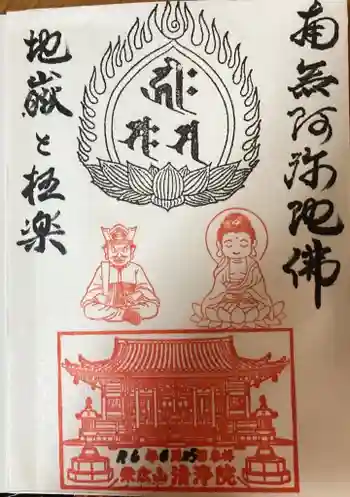 南無阿弥陀佛
地嶽と極楽
R6年6月25日参拝
清浄院